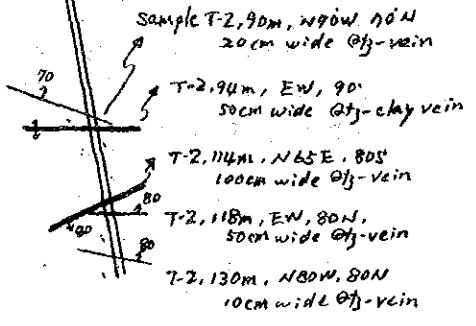 Sample T-2, 90m, N70W 70N
20cm wide Qtz-vein
70
T-2, 94m, EW, 90°
50cm wide Qtz-clay vein
T-2, 114m, N65E, 80S
100cm wide Qtz-vein
80
T-2, 118m, EW, 80N,
50cm wide Qtz-vein
80
80
T-2, 130m, N80W, 80N
10cm wide Qtz-vein